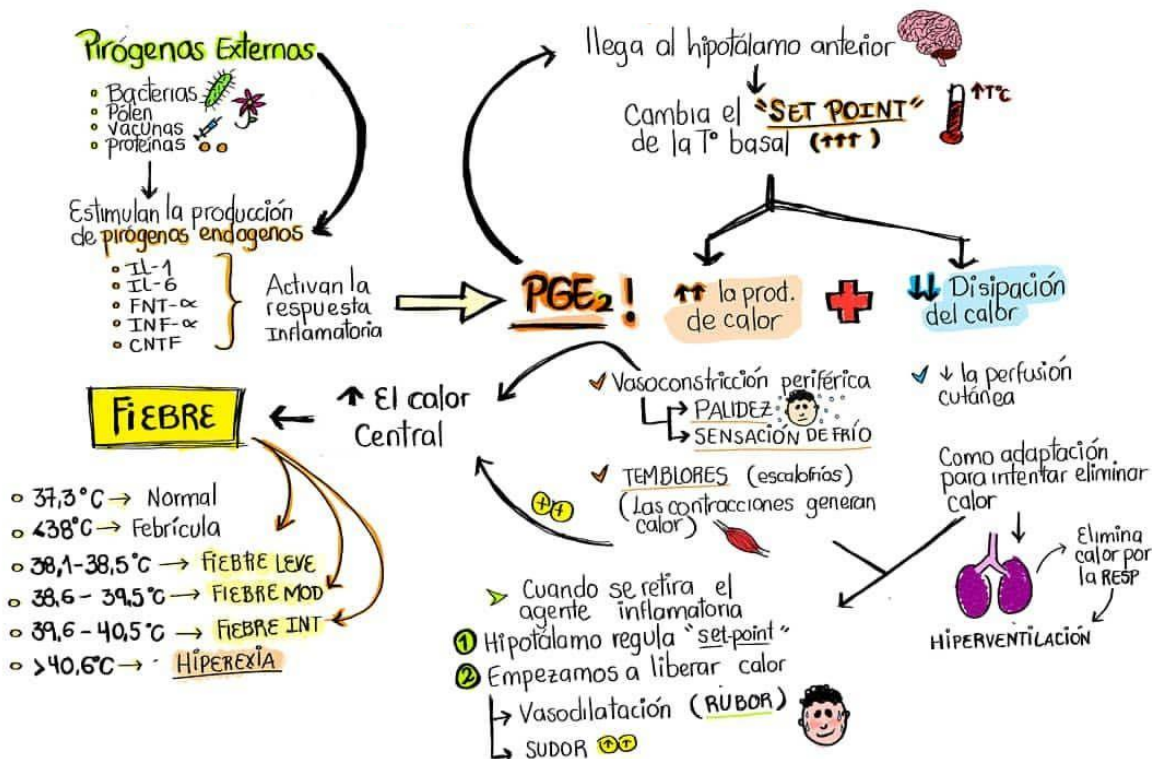 Pirógenas Externas
• Bacterias
• Pólen
• Vacunas
• Proteínas
Estimulan la producción
de pirógenos endogenos
• IL-1
• IL-6
• FNT-α
• INF-α
• CNTF
Activan la
respuesta
Inflamatoria
PGE₂ !
llega al hipotálamo anterior
Cambia el "SET POINT"
de la Tº basal (↑↑↑)
↑TºC
↑↑ la prod.
de calor
↓↓ Disipación
del calor
✓ Vasoconstricción periférica
→ PALIDEZ
→ SENSACIÓN DE FRÍO
✓ TEMBLORES (escalofríos)
(Las contracciones generan
calor)
✓ ↓ la perfusión
cutánea
Como adaptación
para intentar eliminar
calor
Elimina
calor por
la RESP
HIPERVENTILACIÓN
↑ El calor
Central
++
FIEBRE
• 37,3°C → Normal
• <38°C → Febrícula
• 38,1-38,5°C → FIEBRE LEVE
• 38,6 - 39,5°C → FIEBRE MOD
• 39,6 - 40,5°C → FIEBRE INT
• >40,6°C → HIPEREXIA
➤ Cuando se retira el
agente inflamatoria
① Hipotálamo regula "set-point"
② Empezamos a liberar calor
→ Vasodilatación (RUBOR)
→ SUDOR ↑↑